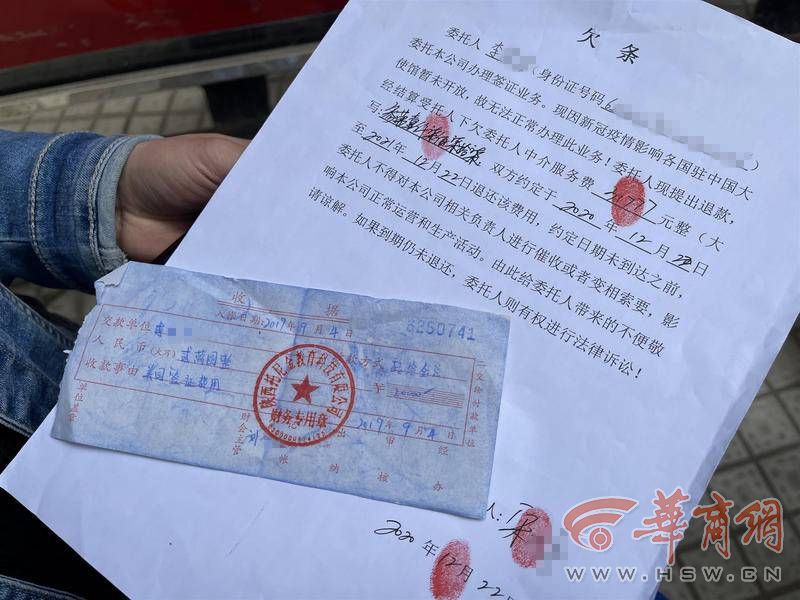 欠 条
委托人 李 （身份证号码6 ）
委托本公司办理签证业务。现因新冠疫情影响各国驻中国大
使馆暂未开放，故无法正常办理此业务！委托人现提出退款，
经结算受托人下欠委托人中介服务费 元整（大
写 双方约定于 2020 年 12 月 22 日
至 2021 年 12 月 22 日退还该费用，约定日期未到达之前，
委托人不得对本公司相关负责人进行催收或者变相索要，影
响本公司正常运营和生产活动。由此给委托人带来的不便敬
请谅解。如果到期仍未退还，委托人则有权进行法律诉讼！
人：
2020 年 12 月 22 日
收 据
入账日期：2017年9月4日
6250741
交款单位 李
人民币（大写） 贰万圆整
收款事由 美国签证费用
2017年9月4日
财务专用章
单位盖章 财会主管 记帐 出纳 审核 经办
華商網
WWW.HSW.CN